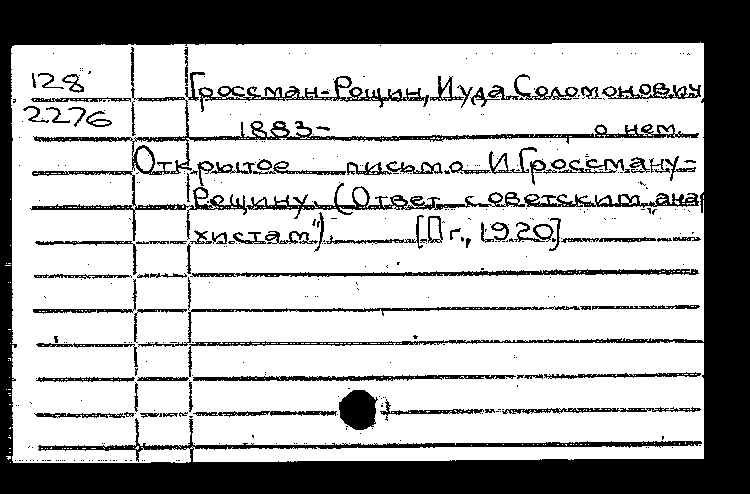 128
2276
Гроссман-Рощин, Иуда Соломонович,
1883- о нем.
Открытое письмо И. Гроссману-
Рощину. (Ответ советским "анар
хистам"). [Пг., 1920]